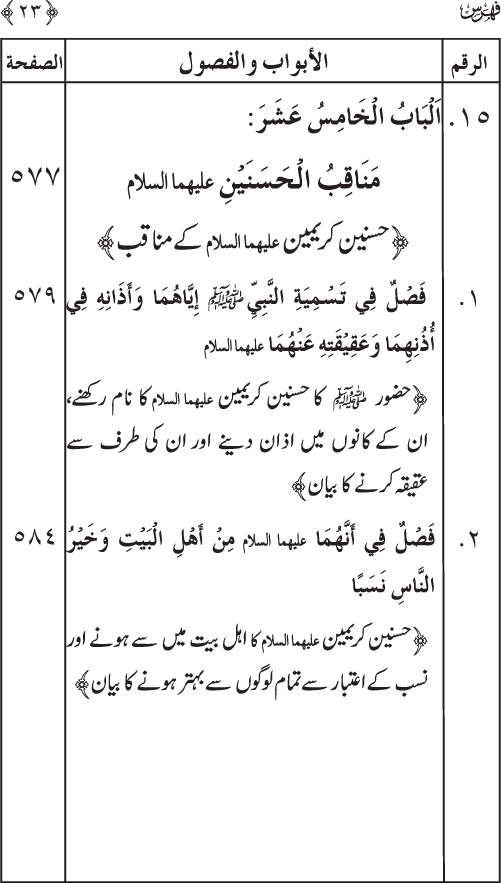 فہرس ﴿ ٢٣ ﴾
الرقم الأبواب والفصول الصفحة
١٥. اَلْبَابُ الْخَامِسُ عَشَرَ:
مَنَاقِبُ الْحَسَنَيْنِ علیہما السلام ٥٧٧
﴿حسنین کریمین علیہما السلام کے مناقب﴾
١. فَصْلٌ فِي تَسْمِيَةِ النَّبِيِّ ﷺ إِيَّاهُمَا وَأَذَانِهِ فِي ٥٧٩
أُذُنِهِمَا وَعَقِيْقَتِهِ عَنْهُمَا علیہما السلام
﴿حضور ﷺ کا حسنین کریمین علیہما السلام کا نام رکھنے،
ان کے کانوں میں اذان دینے اور ان کی طرف سے
عقیقہ کرنے کا بیان﴾
٢. فَصْلٌ فِي أَنَّهُمَا علیہما السلام مِنْ أَهْلِ الْبَيْتِ وَخَيْرُ ٥٨٤
النَّاسِ نَسَبًا
﴿حسنین کریمین علیہما السلام کا اہل بیت میں سے ہونے اور
نسب کے اعتبار سے تمام لوگوں سے بہتر ہونے کا بیان﴾